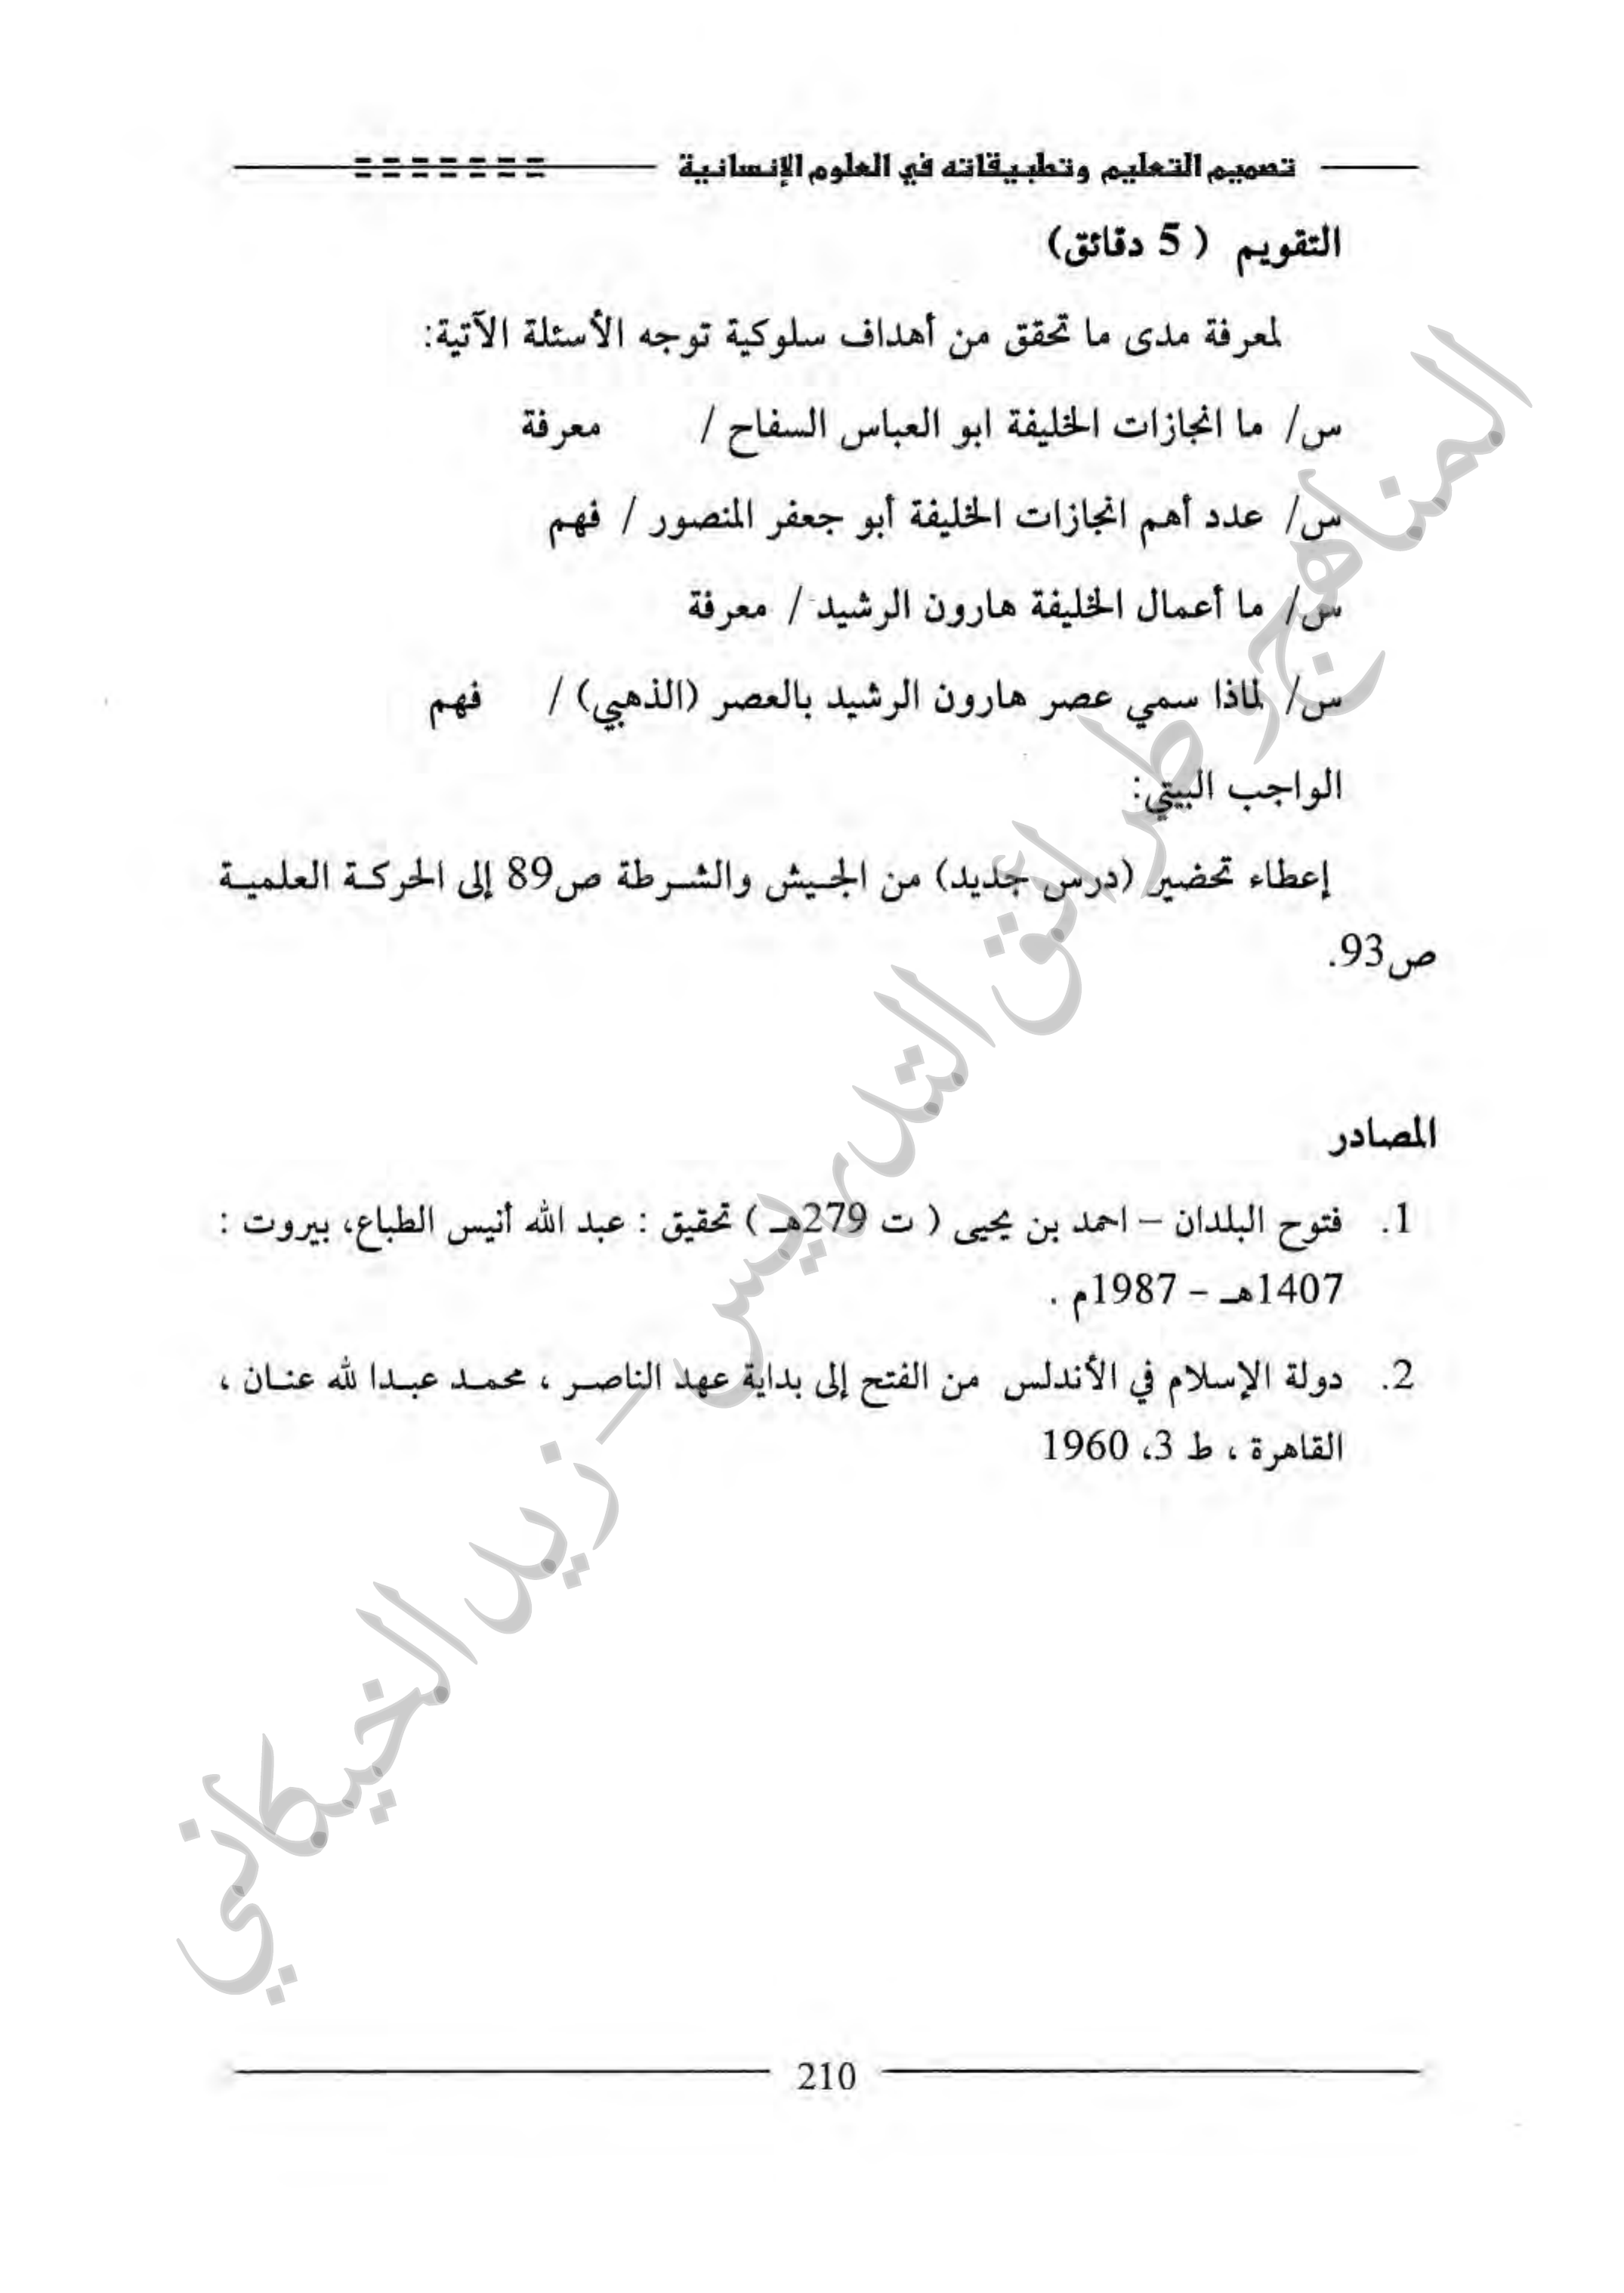 تصميم التعليم وتطبيقاته في العلوم الإنسانية
التقويم ( 5 دقائق)
لمعرفة مدى ما تحقق من أهداف سلوكية توجه الأسئلة الآتية:
س/ ما انجازات الخليفة ابو العباس السفاح / معرفة
س/ عدد أهم انجازات الخليفة أبو جعفر المنصور / فهم
س/ ما أعمال الخليفة هارون الرشيد / معرفة
س/ لماذا سمي عصر هارون الرشيد بالعصر (الذهبي) / فهم
الواجب البيتي:
إعطاء تحضير (درس جديد) من الجيش والشرطة ص89 إلى الحركة العلمية
ص93.
المصادر
1. فتوح البلدان – احمد بن يحيى ( ت 279هـ ) تحقيق : عبد الله أنيس الطباع، بيروت :
1407هـ – 1987م .
2. دولة الإسلام في الأندلس من الفتح إلى بداية عهد الناصر ، محمد عبدا لله عنان ،
القاهرة ، ط 3، 1960
المناهج وطرائق التدريس - زيد الخيكاني
210